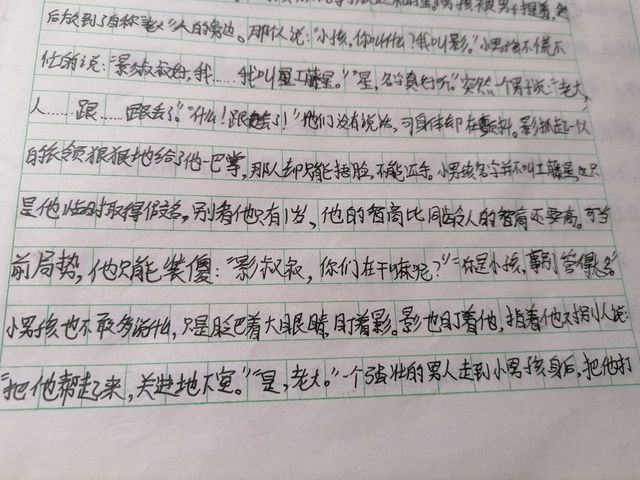 后放到了自称老大的人的身边。那人说：“小孩，你叫什么？我叫影。”小男孩不慌不
忙的说：“影叔叔好，我……我叫工藤星。”“星，名字真好听。”突然一个男子说：“老大，
人……跟……跟丢了。”“什么！跟丢了！”他们没有说话，可身体却在颤抖。影抓起一人
的衣领狠狠地给了他一巴掌，那人却只能捂脸，不能还手。小男孩名字并不叫工藤星，这只
是他临时取得假名，别看他只有1岁，他的智商比同龄人的智商还要高。可当
前局势，他只能装傻：“影叔叔，你们在干嘛呢？”“你是小孩，事别管得多。”
小男孩也不敢多说什么，只是眨巴着大眼睛盯着影。影也盯着他，指着他不按别人说：
“把他帮起来，关进地下室。”“是，老大。”一个强壮的男人走到小男孩身后，把他打